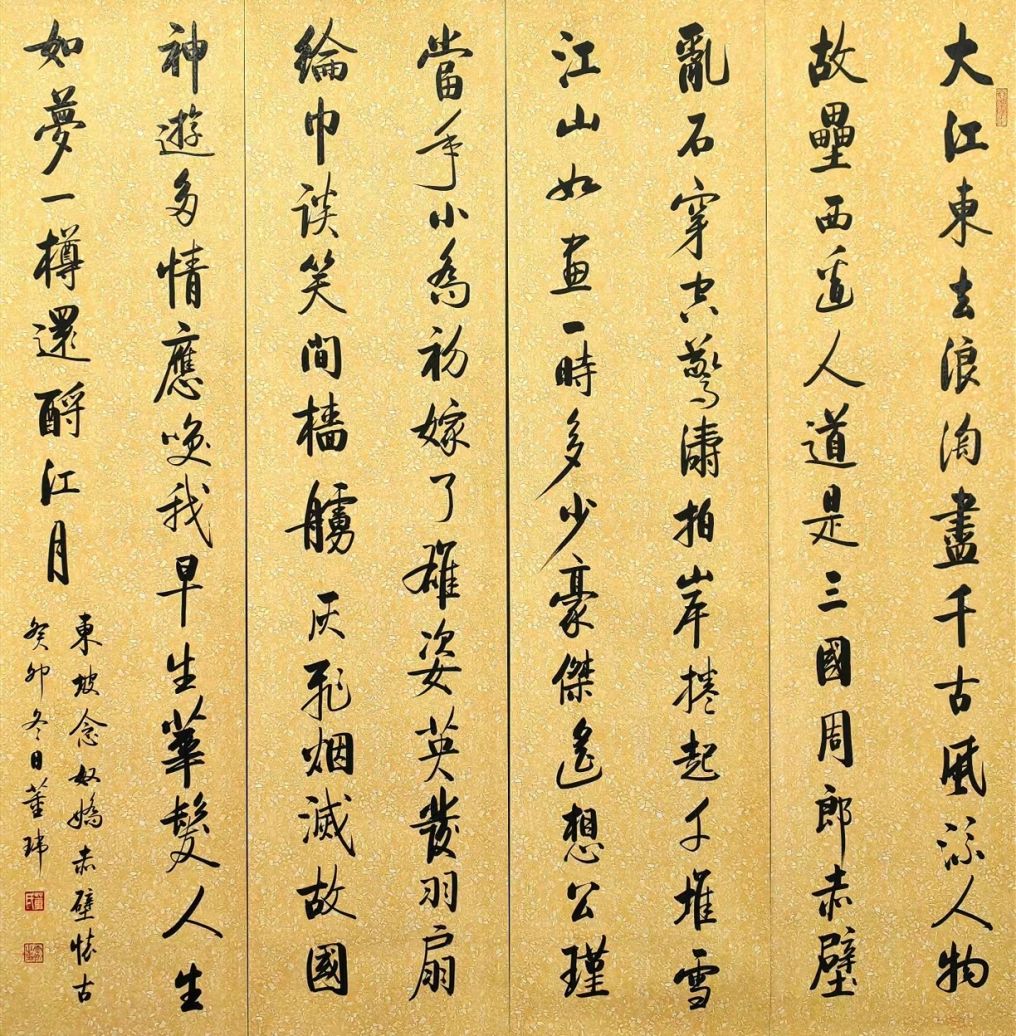 大江東去浪淘盡千古風流人物
故壘西邊人道是三國周郎赤壁
亂石穿空驚濤拍岸捲起千堆雪
江山如畫一時多少豪傑遙想公瑾
當年小喬初嫁了雄姿英發羽扇
綸巾談笑間檣艣灰飛烟滅故國
神遊多情應喚我早生華髮人生
如夢一樽還酹江月
東坡念奴嬌赤壁懷古
癸卯冬日董瑋